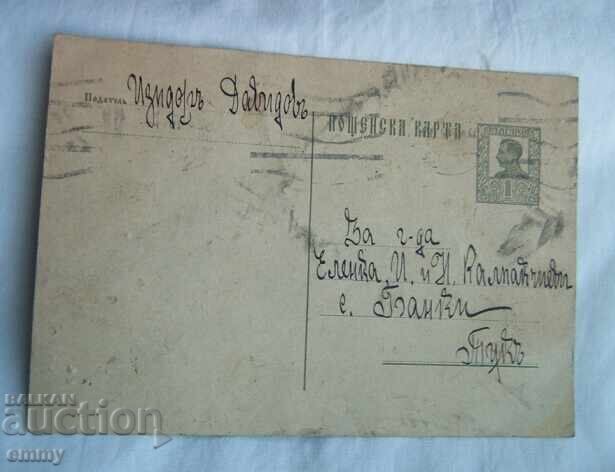 Податель Изидоръ Давидовъ
ПОЩЕНСКА КАРТА
1
За г-да
Еленка, И. и Н. Калпакчиеви
с. Банки
Тукъ
BALKAN
auction
emmy